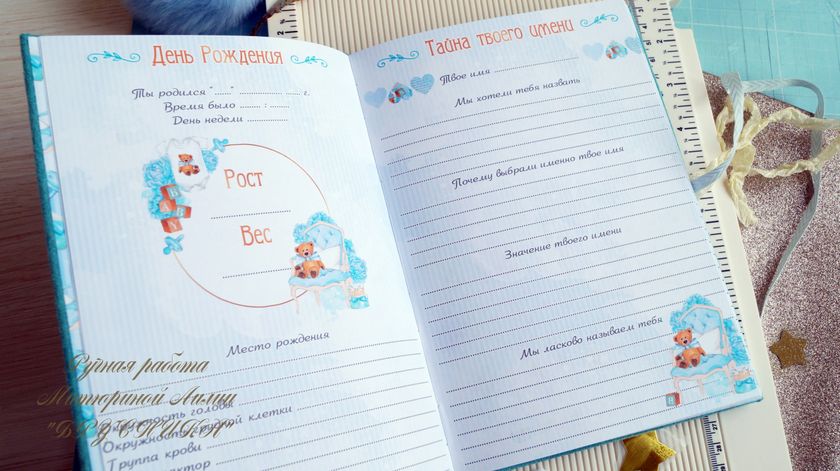 День Рождения
Ты родился "......" .................. ...... г.
Время было ........ : ........
День недели ................
Рост
Вес
Место рождения
Окружность головы
Окружность грудной клетки
Группа крови
Тайна твоего имени
Твое имя
Мы хотели тебя назвать
Почему выбрали именно твое имя
Значение твоего имени
Мы ласково называем тебя
Ручная работа
Моториной Лилии